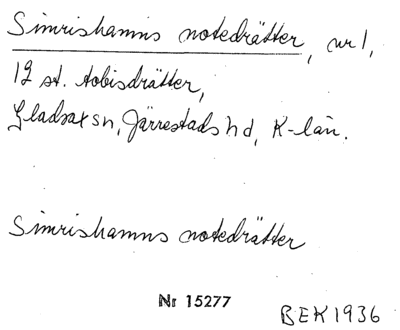 Simrishamns notedrätter, nr 1,
12 st. tobisdrätter,
Gladsax sn, Järrestads hd, K-län.
Simrishamns notedrätter
Nr 15277
BEK 1936